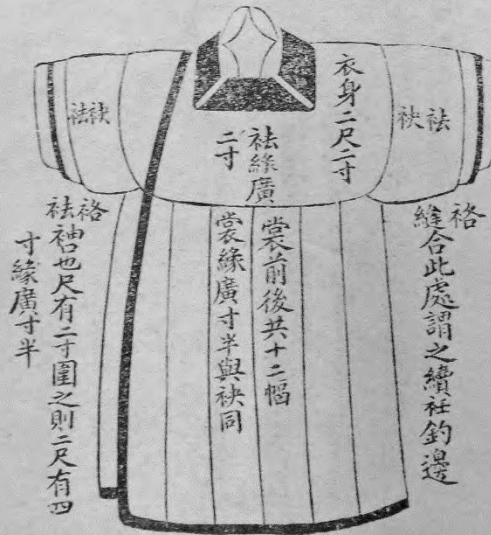 袪
袂
衣身二尺二寸
袪緣廣
二寸
袂
袪
袼
縫合此處謂之續衽釣邊
裳前後共十二幅
裳緣廣寸半與袂同
袼
袪袖也尺有二寸圍之則二尺有四
寸緣廣寸半